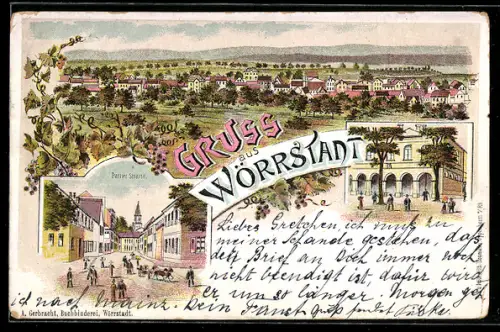 GRUSS
aus
WÖRRSTADT
Pariser Strasse.
Liebes Gretchen, ich muß zu
meiner Schande gestehen, daß
der Brief an Dich immer noch
nicht beendigt ist, dafür wird
er um so länger. Morgen geh
ich nach Mainz. Dein
A. Gerbracht, Buchbinderei, Wörrstadt.